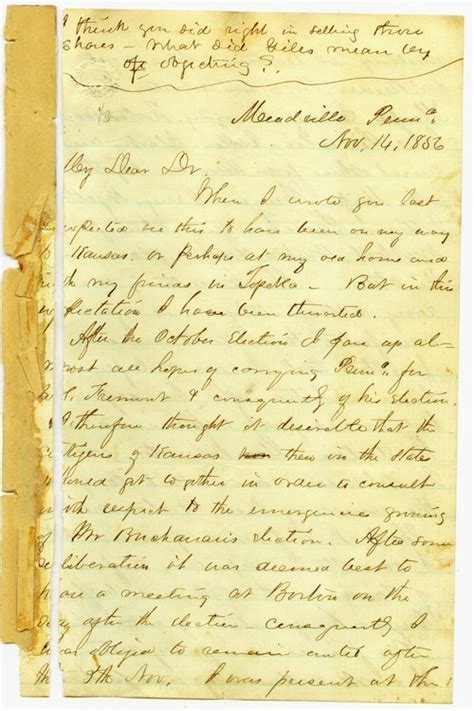 I think you did right in selling those
shares – What did Giles mean by
objecting?
Meadville Penna.
Nov. 14, 1856
My Dear Dr.
When I wrote you last
expected ere this to have been on my way
to Kansas, or perhaps at my old home and
with my friends in Topeka – But in this
expectation I have been thwarted.
After the October Election I gave up al-
most all hopes of carrying Penna. for
Fremont & consequently of his election.
I therefore thought it desirable that the
citizens of Kansas then in the States
should get together in order to consult
with respect to the emergencies growing
of Mr Buchanan's election. After some
deliberation it was deemed best to
have a meeting at Boston on the
day after the election – consequently I
was obliged to remain until after
the 5th Nov. I was present at the